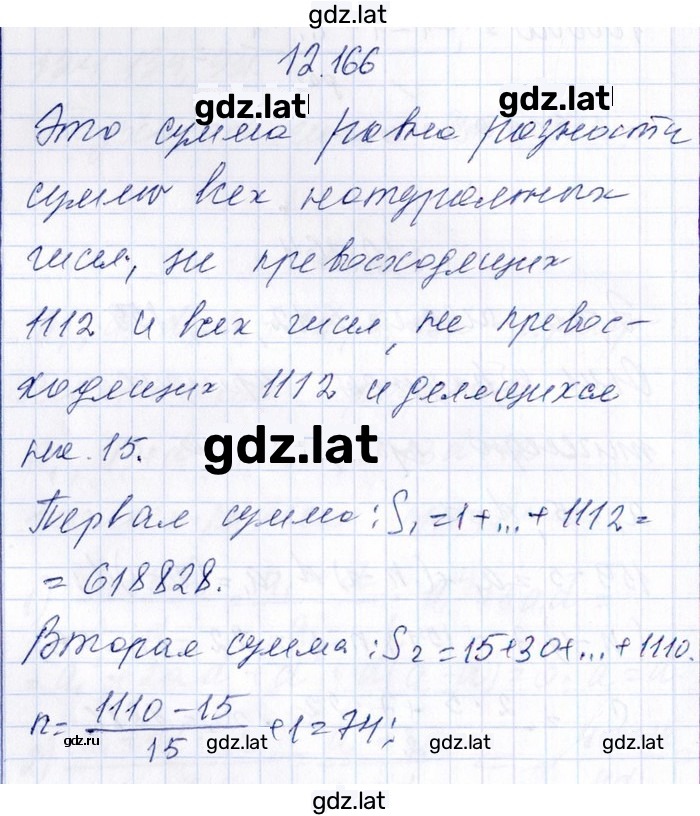 gdz.lat
12.166
gdz.lat
gdz.lat
Это сумма равна разности
суммы всех натуральных
чисел, не превосходящих
1112 и всех чисел, не превос-
ходящих 1112 и делящихся
на 15.
gdz.lat
Первая сумма: S₁=1+...+1112=
=618828.
Вторая сумма: S₂=15+30+...+1110.
n= (1110-15)/15 +1=74;
gdz.ru
gdz.lat
gdz.lat
gdz.lat
gdz.lat